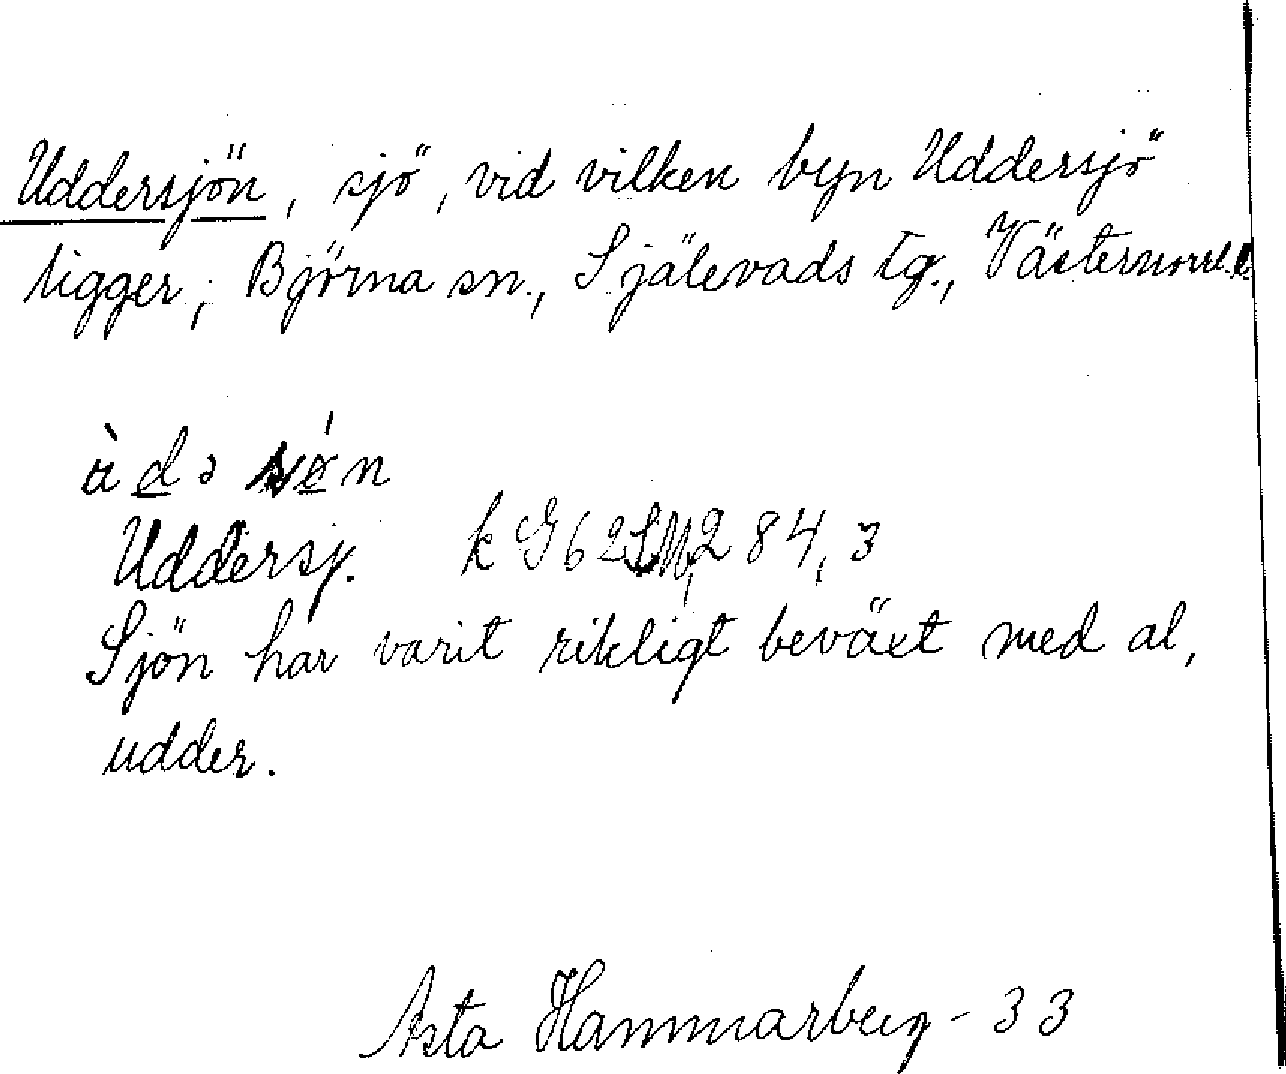 Uddersjön, sjö, vid vilken byn Uddersjö
ligger; Björna sn., Själevads tg., Västernorrl. l.
Uddersj. k G62 284,3
Sjön har varit rikligt beväxt med al,
udder.
Asta Hammarberg - 33